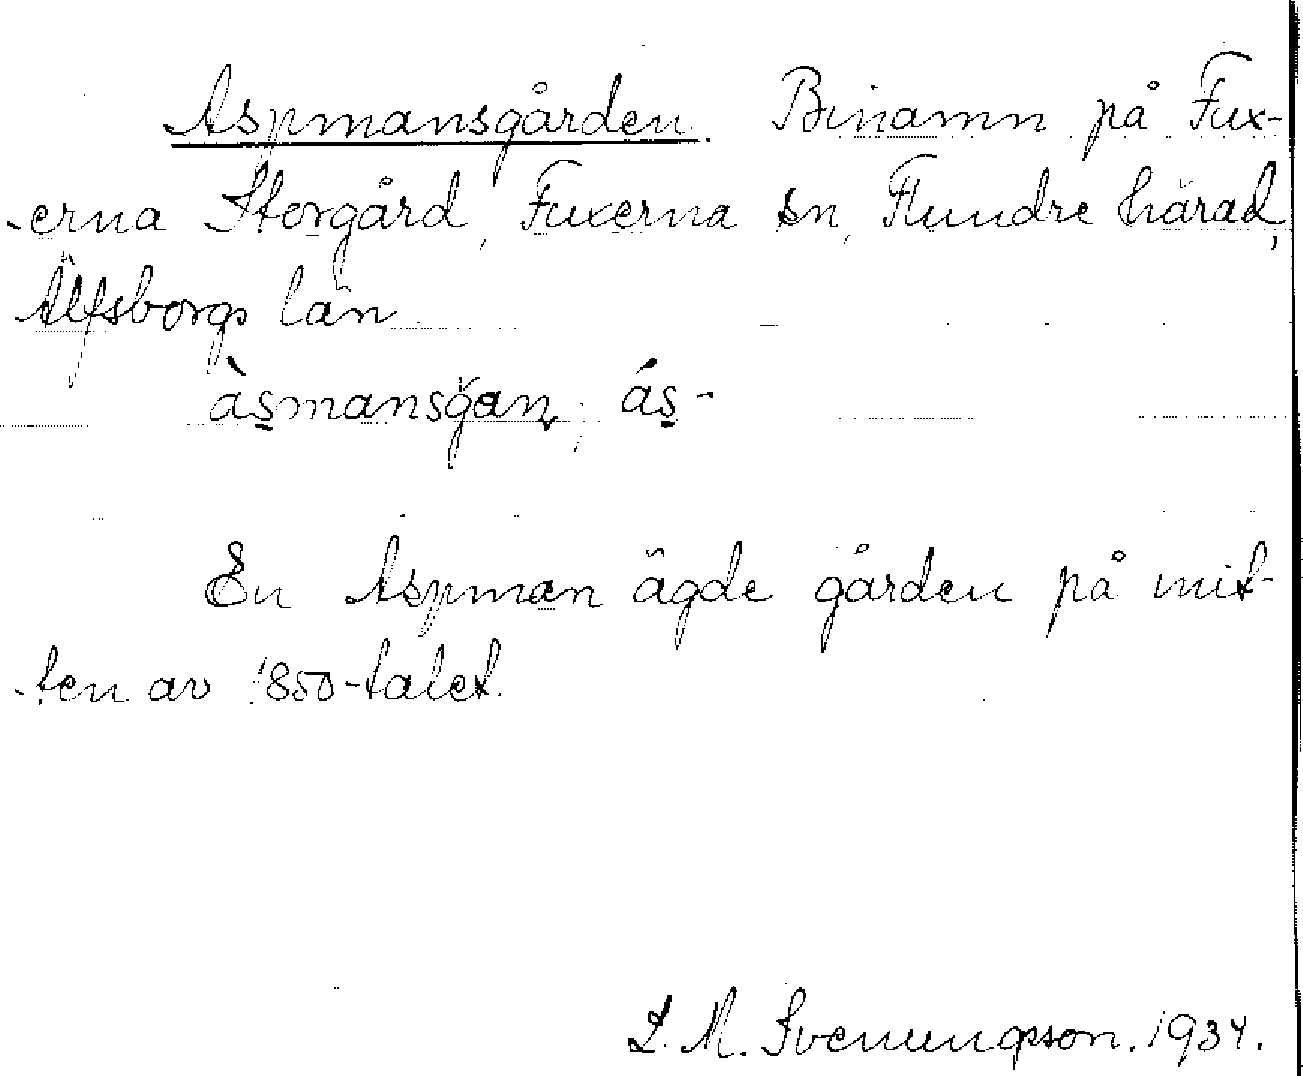 Aspmansgården. Binamn på Fux-
-erna Storgård, Fuxerna sn, Flundre härad,
Älfsborgs län
àsmansgan, ás-
En Aspman ägde gården på mit-
-ten av 1850-talet.
S. M. Svenungsson. 1934.